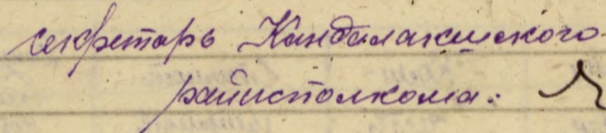 секретарь Кандалакшского
райисполкома: